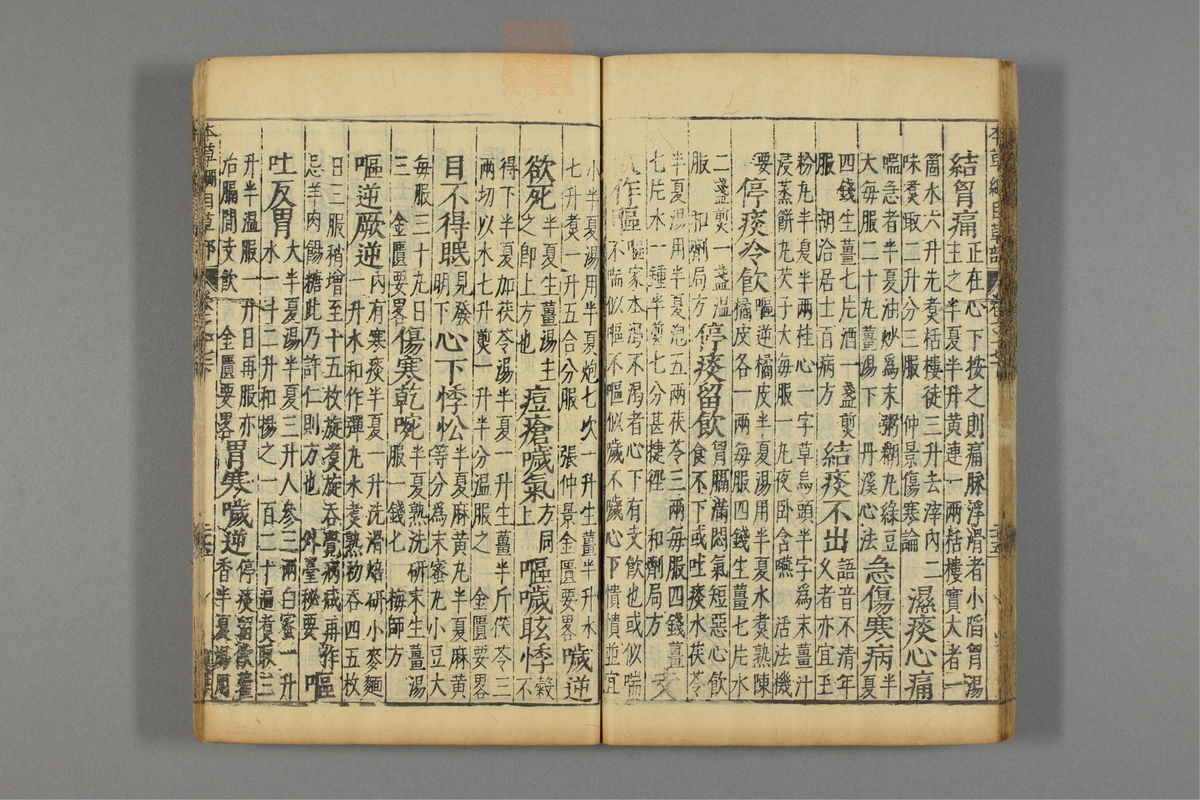 結胷痛
正在心下按之則痛脉浮滑者小陷胷湯
主之半夏半升黃連一兩栝樓實大者一
箇水六升先煮栝樓徒三升去滓內二
味煮取二升分三服 仲景傷寒論
濕痰心痛
喘急者半夏油炒爲末粥糊丸綠豆
大每服二十丸薑湯下 丹溪心法
急傷寒病
半夏
四錢生薑七片酒一盞煎
服 胡洽居士百病方
結痰不出
語音不清年
久者亦宜玉
粉丸半夏半兩桂心一字草烏頭半字爲末薑汁
浸蒸餅丸芡子大每服一丸夜卧含嚥 活法機
要
停痰冷飲
嘔逆橘皮半夏湯用半夏水煮熟陳
橘皮各一兩每服四錢生薑七片水
二盞煎一盞溫
服 和劑局方
停痰留飲
胷膈滿悶氣短惡心飲
食不下或吐痰水茯苓
半夏湯用半夏泡五兩茯苓三兩每服四錢薑
七片水一鍾半煎七分甚捷徑 和劑局方
支
飲作嘔
嘔家本渴不渴者心下有支飲也或似喘
不喘似嘔不嘔似噦不噦心下憒憒並宜
小半夏湯用半夏炮七次一升生薑半升水
七升煮一升五合分服 張仲景金匱要畧
噦逆
欲死
半夏生薑湯主
之即上方也
痘瘡噦氣
方同
上
嘔噦眩悸
穀不
得下半夏加茯苓湯半夏一升生薑半斤茯苓三
兩切以水七升煎一升半分溫服之 金匱要畧
目不得眠
見發
明下
心下悸忪
半夏麻黃丸半夏麻黃
等分爲末蜜丸小豆大
每服三十丸日
三 金匱要畧
傷寒乾啘
半夏熟洗研末生薑湯
服一錢七 梅師方
嘔逆厥逆
內有寒痰半夏一升洗滑焙研小麥麵
一升水和作彈丸水煮熟初吞四五枚
日三服稍增至十五枚旋煑旋吞覺病减再作
忌羊肉餳糖此乃許仁則方也 外臺秘要
嘔
吐反胃
大半夏湯半夏三升人參三兩白蜜一升
水一斗二升和揚之一百二十遍煮取三
升半溫服一升日再服亦
治膈間支飲 金匱要畧
胃寒噦逆
停痰留飲藿
香半夏湯用